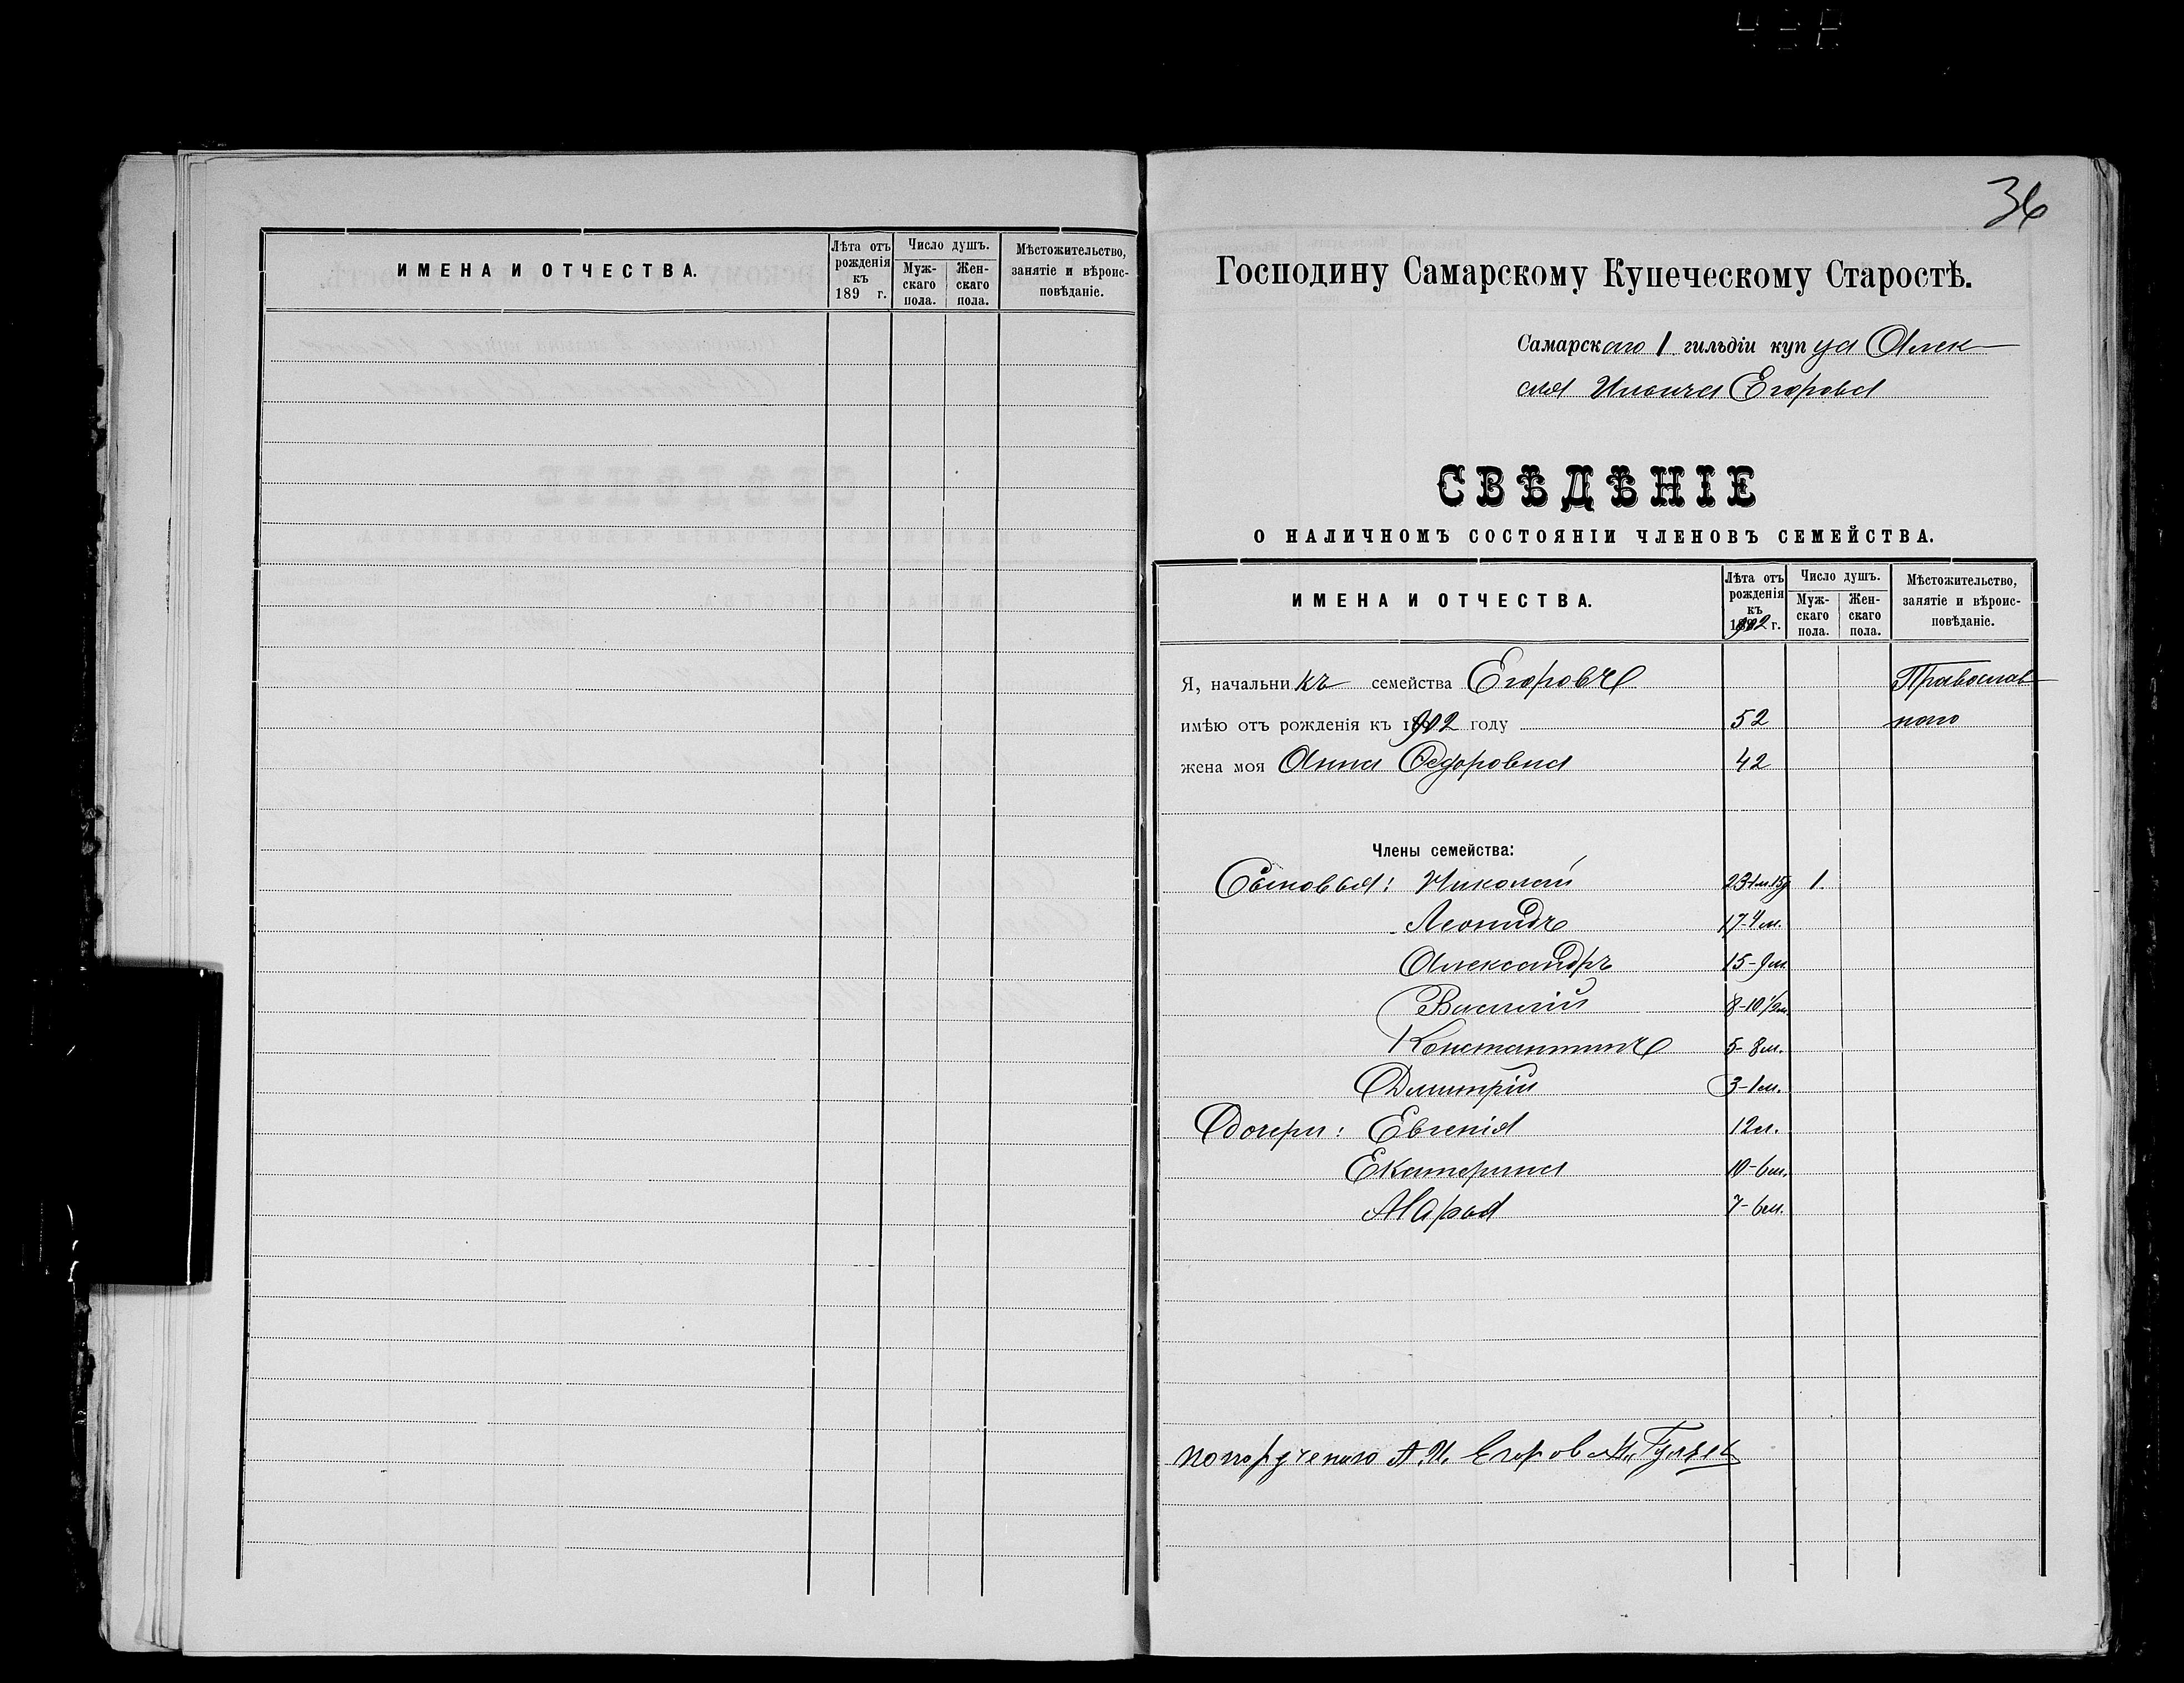 ИМЕНА И ОТЧЕСТВА.
Лѣта отъ рожденія къ 189 г.
Число душъ.
Муж-скаго пола.
Жен-скаго пола.
Мѣстожительство, занятіе и вѣроис-повѣданіе.
36
Господину Самарскому Купеческому Старостѣ.
Самарскаго 1 гильдіи купца Алек-
сѣя Ильича Егорова
СВѢДѢНІЕ
О НАЛИЧНОМЪ СОСТОЯНІИ ЧЛЕНОВЪ СЕМЕЙСТВА.
ИМЕНА И ОТЧЕСТВА.
Лѣта отъ рожденія къ 1902 г.
Число душъ.
Муж-скаго пола.
Жен-скаго пола.
Мѣстожительство, занятіе и вѣроис-повѣданіе.
Я, начальникъ семейства Егоровъ Православ-
имѣю отъ рожденія къ 1902 году 52 наго
жена моя Анна Федоровна 42
Члены семейства:
Сыновья: Николай 23-1м.15д 1.
Леонидъ 17-4м.
Александръ 15-9м.
Василій 8-10½м.
Константинъ 5-8м.
Дмитрій 3-1м.
Дочери: Евгенія 12л.
Екатерина 10-6м.
Марья 7-6м.
по порученію А. И. Егоров